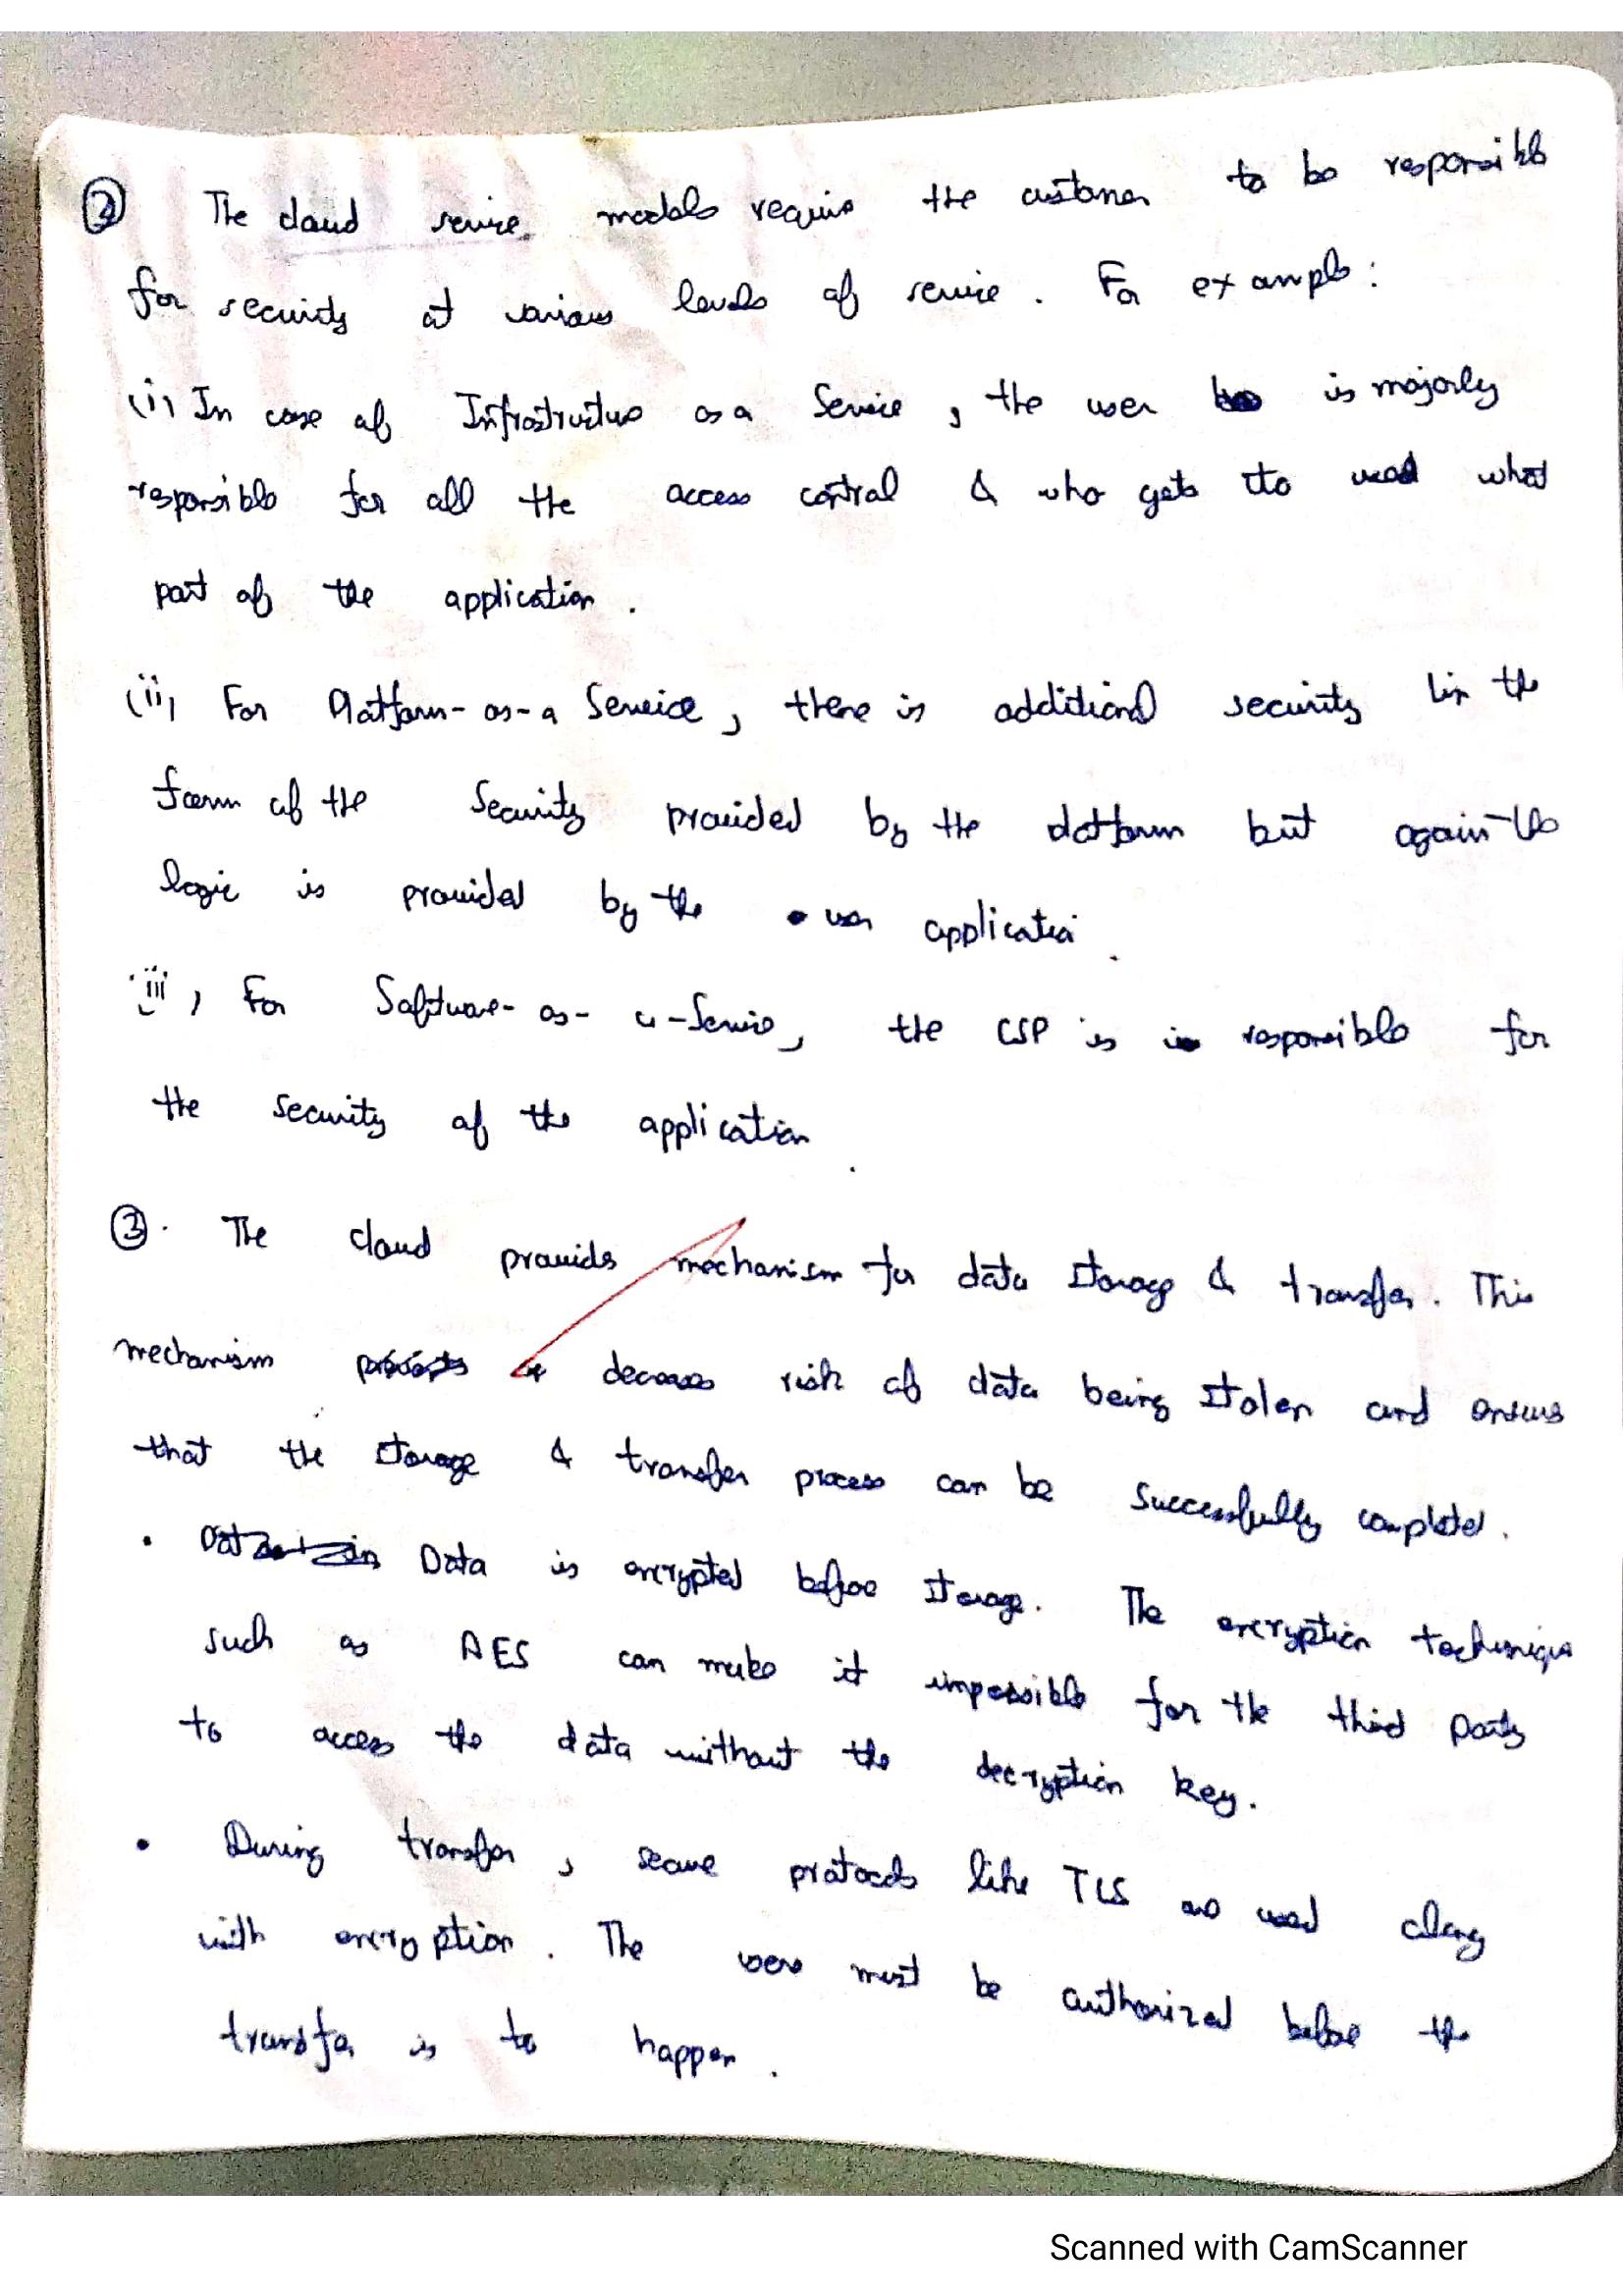 ② The cloud service models require the customer to be responsible
for security at various levels of service. For example:
(i) In case of Infrastructure as a Service, the user is majorly
responsible for all the access control & who gets to used what
part of the application.
(ii) For Platform-as-a Service, there is additional security in the
form of the Security provided by the platform but again the
logic is provided by the user application.
(iii) For Software-as-a-Service, the CSP is responsible for
the security of the application.
③. The cloud provids mechanism for data storage & transfer. This
mechanism decreases risk of data being stolen and ensures
that the storage & transfer process can be successfully completed.
• Data is encrypted before storage. The encryption technique
such as AES can make it impossible for the third party
to access the data without the decryption key.
• During transfer, secure protocols like TLS are used along
with encryption. The users must be authorized before the
transfer is to happen.
Scanned with CamScanner